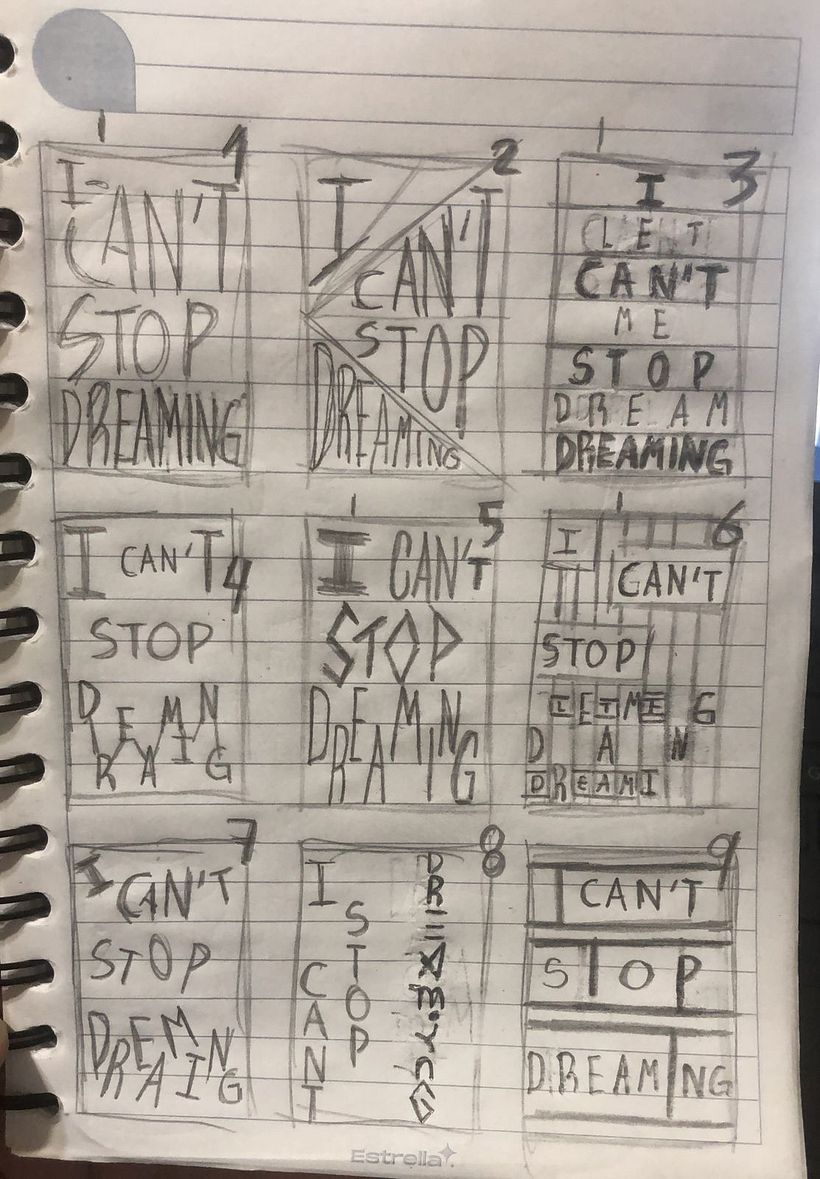 1
I
CAN'T
STOP
DREAMING
2
I
CAN'T
STOP
DREAMING
3
I
CLENT
CAN'T
ME
STOP
DREAM
DREAMING
4
I CAN'T
STOP
DREAMING
5
I CAN'T
STOP
DREAMING
6
I
CAN'T
STOP
G
D A N
DREAMI
7
I CAN'T
STOP
DREAMING
8
I
CANT
STOP
9
I CAN'T
STOP
DREAMING
Estrella